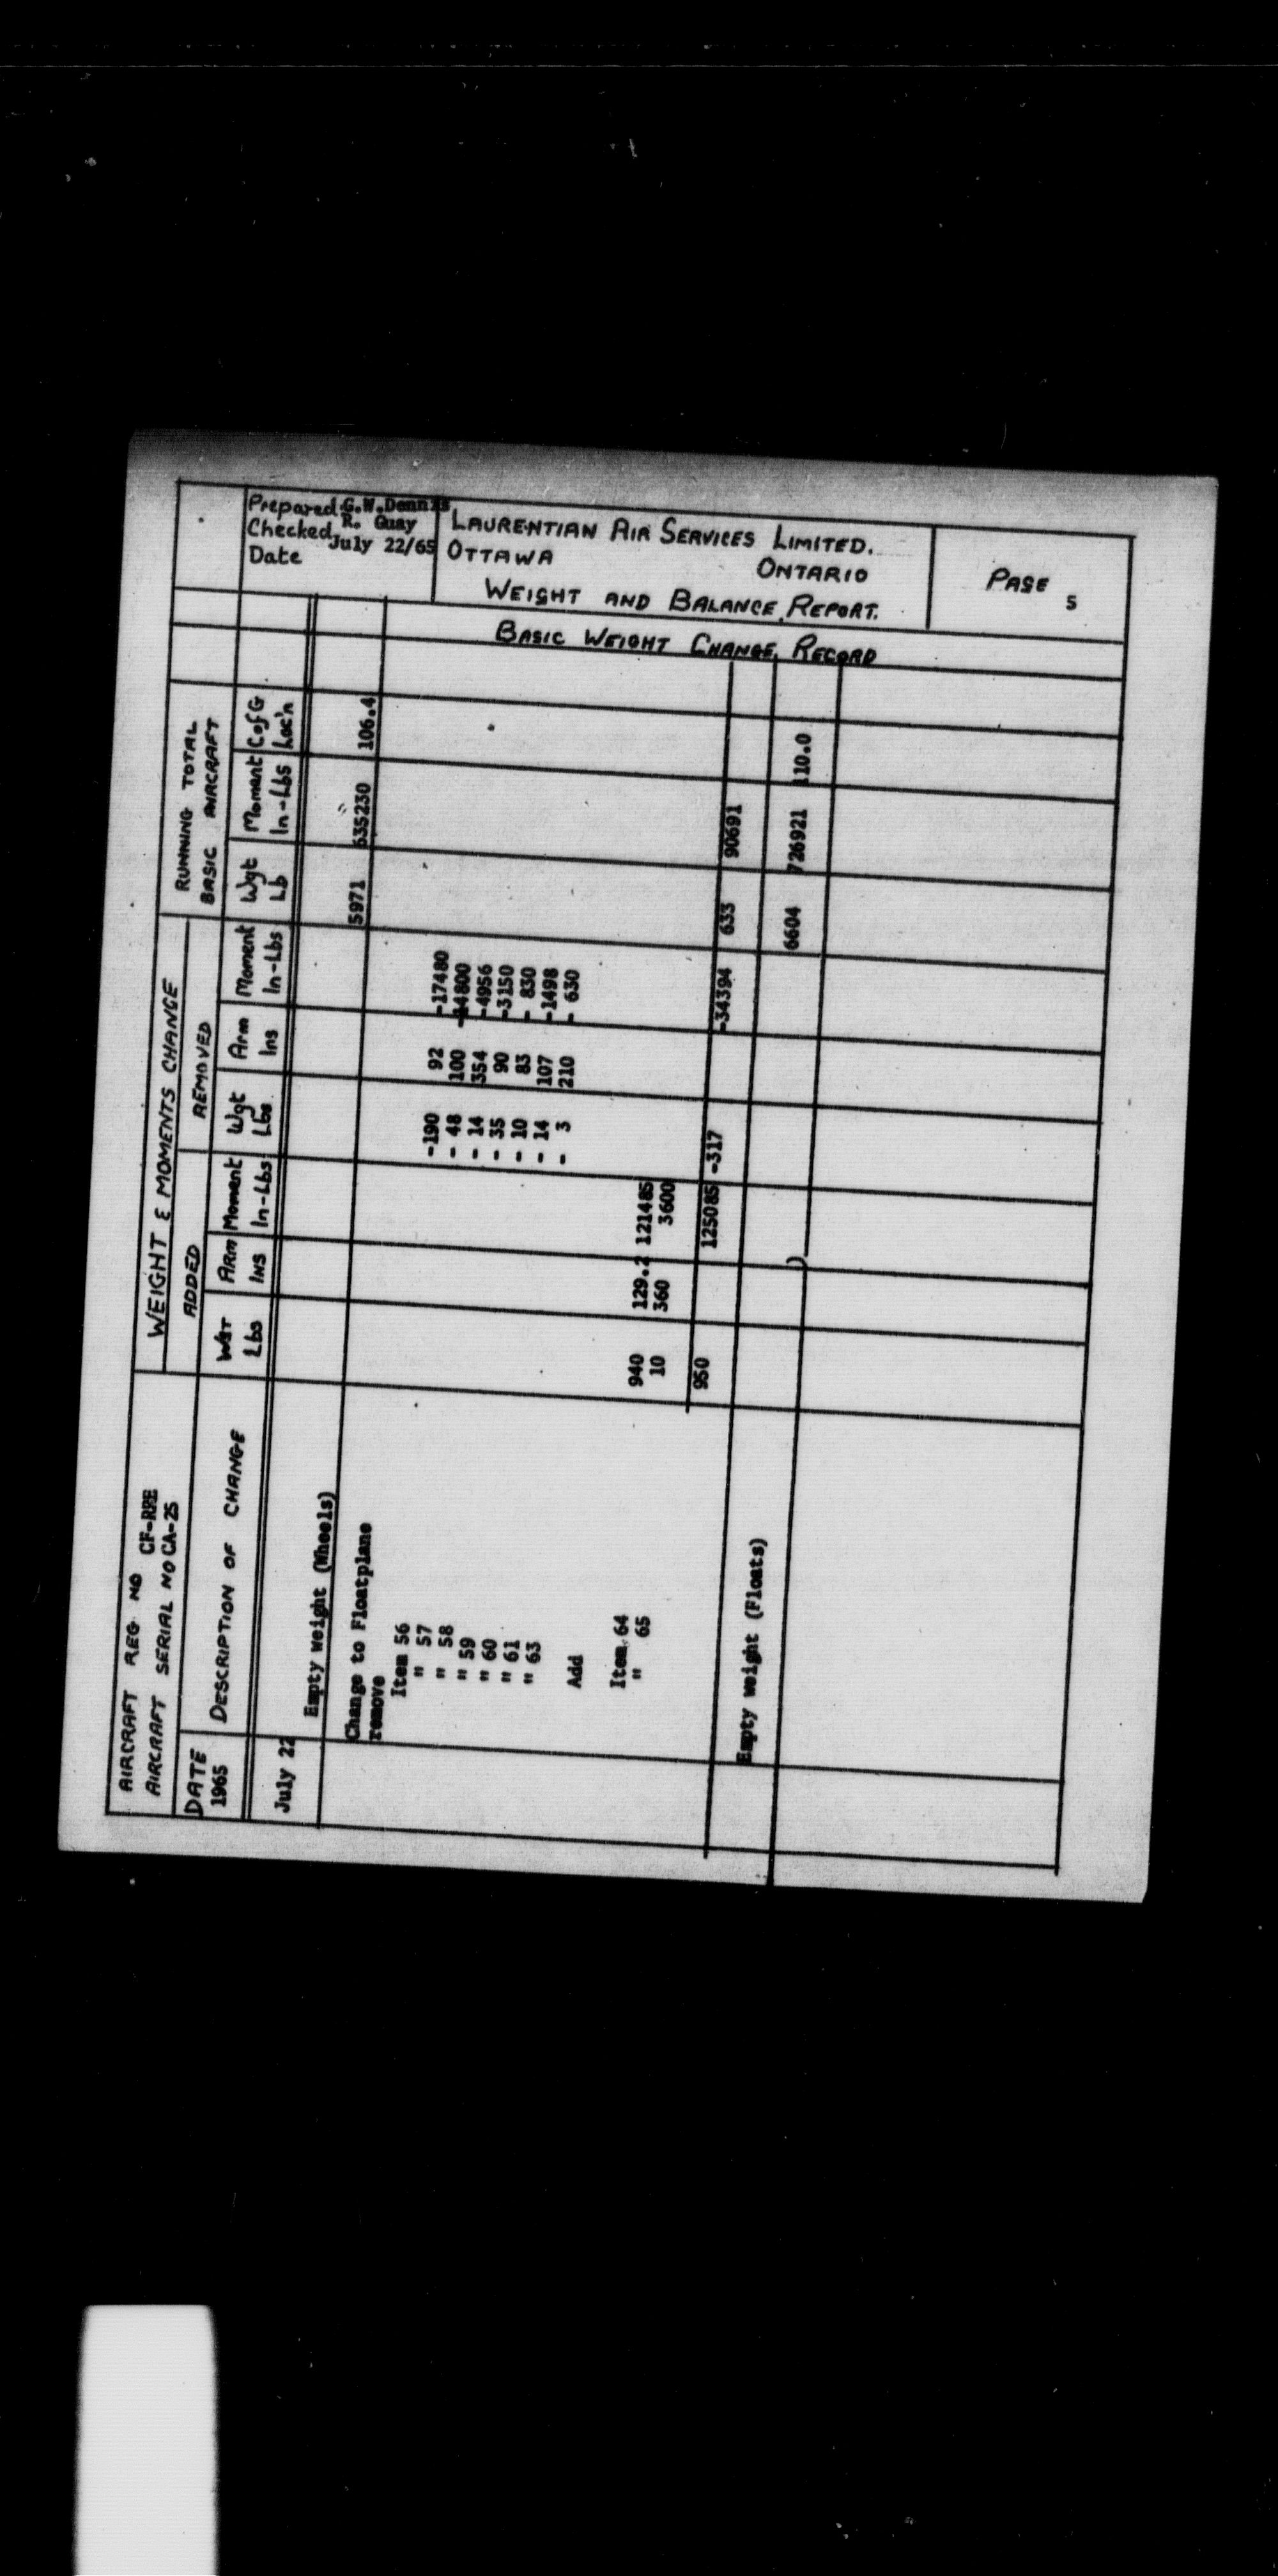 Prepared G.W.Dennis
Checked R. Guay
Date July 22/65
LAURENTIAN AIR SERVICES LIMITED.
OTTAWA ONTARIO
WEIGHT AND BALANCE REPORT.
PAGE 5
BASIC WEIGHT CHANGE RECORD
AIRCRAFT REG NO CF-RPE
AIRCRAFT SERIAL NO CA-25
WEIGHT & MOMENTS CHANGE
RUNNING TOTAL
BASIC AIRCRAFT
ADDED REMOVED
DATE 1965 DESCRIPTION OF CHANGE WGT Lbs ARM INS Moment In-Lbs Wgt Lbs Arm Ins Moment In-Lbs Wgt Lb Moment In-Lbs C of G Loc'n
July 22
Empty weight (Wheels) 5971 635230 106.4
Change to Floatplane
remove
Item 56 -190 92 -17480
" 57 - 48 100 -4800
" 58 - 14 354 -4956
" 59 - 35 90 -3150
" 60 - 10 83 - 830
" 61 - 14 107 -1498
" 63 - 3 210 - 630
Add
Item 64 940 129.2 121485
" 65 10 360 3600
950 125085 -317 -34394 633 90691
Empty weight (Floats) 6604 726921 110.0